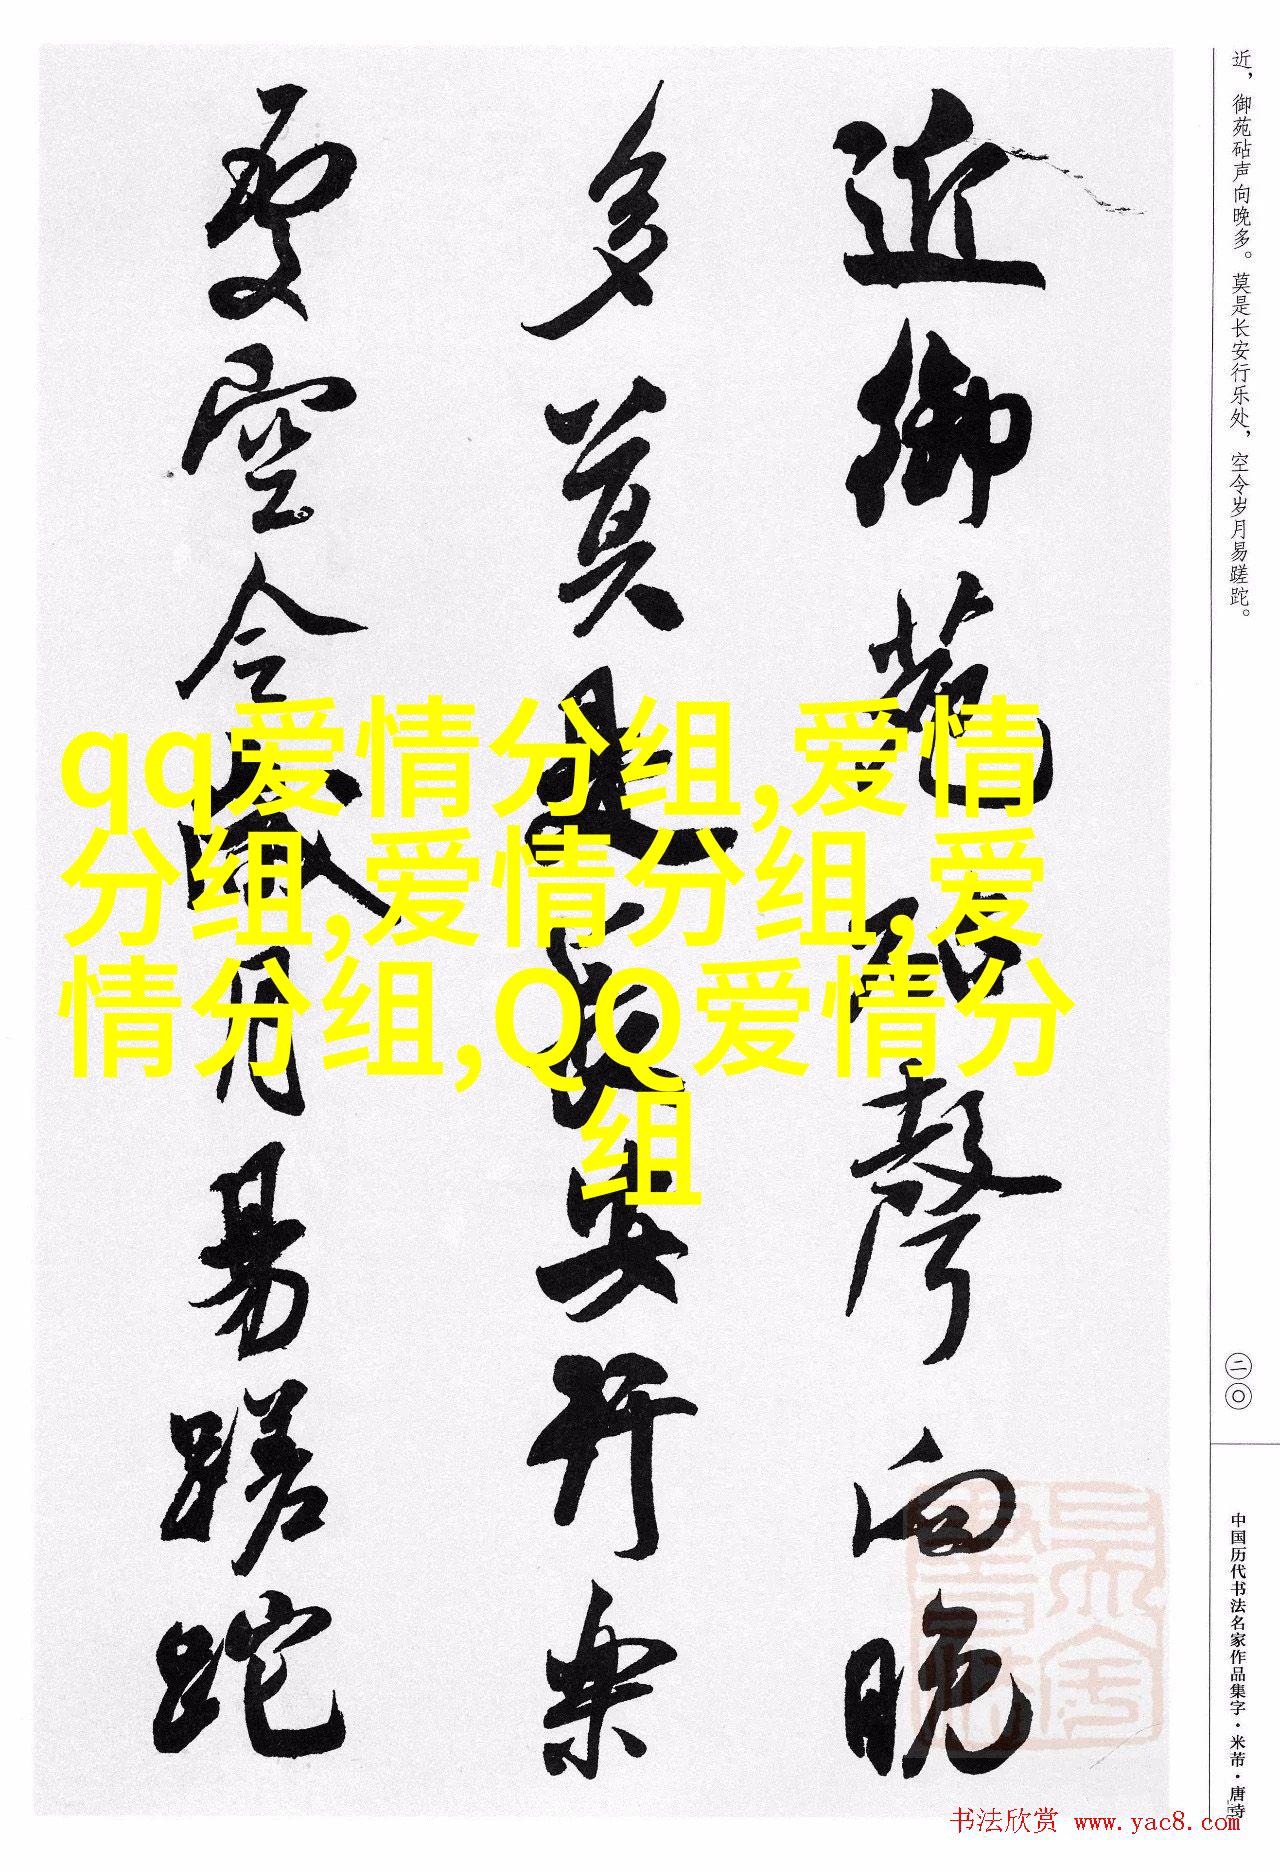 近，御苑砧声向晚多。莫是长安行乐处，空令岁月易蹉跎。
近御苑砧聲向晚
多莫是长安行樂
處空令歲月易蹉跎
qq爱情分组,爱情
分组,爱情分组,爱
情分组,QQ爱情分
组
二〇
中国历代书法名家作品集字·米芾·唐诗
书法欣赏 www.yac8.com